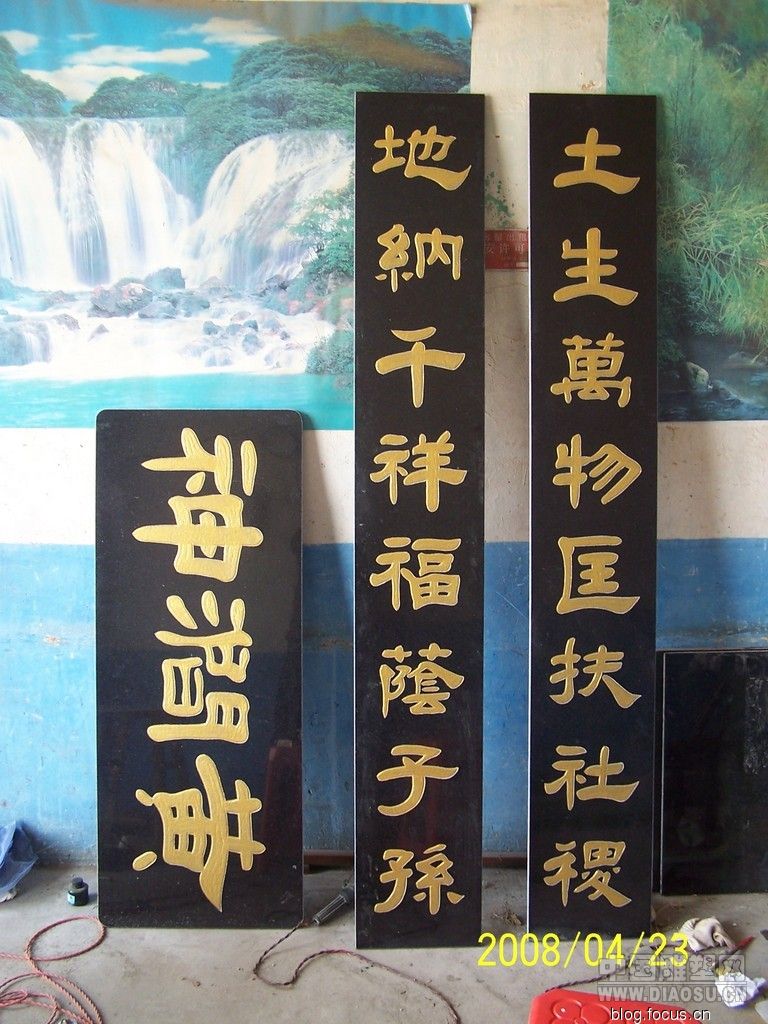 土生萬物匡扶社稷
地納千祥福蔭子孫
黄澗神
2008/04/23
中国雕塑网
WWW.DIAOSU.CN
blog.focus.cn